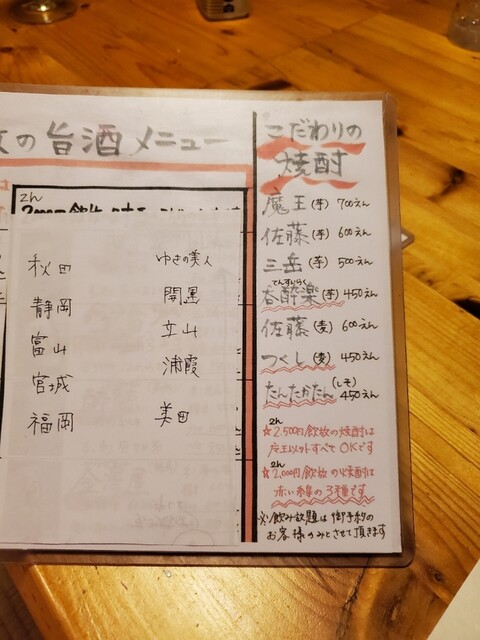 の旨酒メニュー
2h
秋田 ゆきの美人
静岡 開운
富山 立山
宮城 浦霞
福岡 美田
こだわりの
焼酎
魔王(芋) 700えん
佐藤(芋) 600えん
三岳(芋) 500えん
てんすいらく
呑酔楽(芋) 450えん
佐藤(麦) 600えん
つくし(麦) 450えん
たんたかたん(しそ) 450えん
2h
☆2,500円飲放の焼酎は
魔王以外すべてOKです
2h
☆2,000円飲放の焼酎は
赤い線の3種です
※飲み放題は御予約の
お客様のみとさせて頂きます